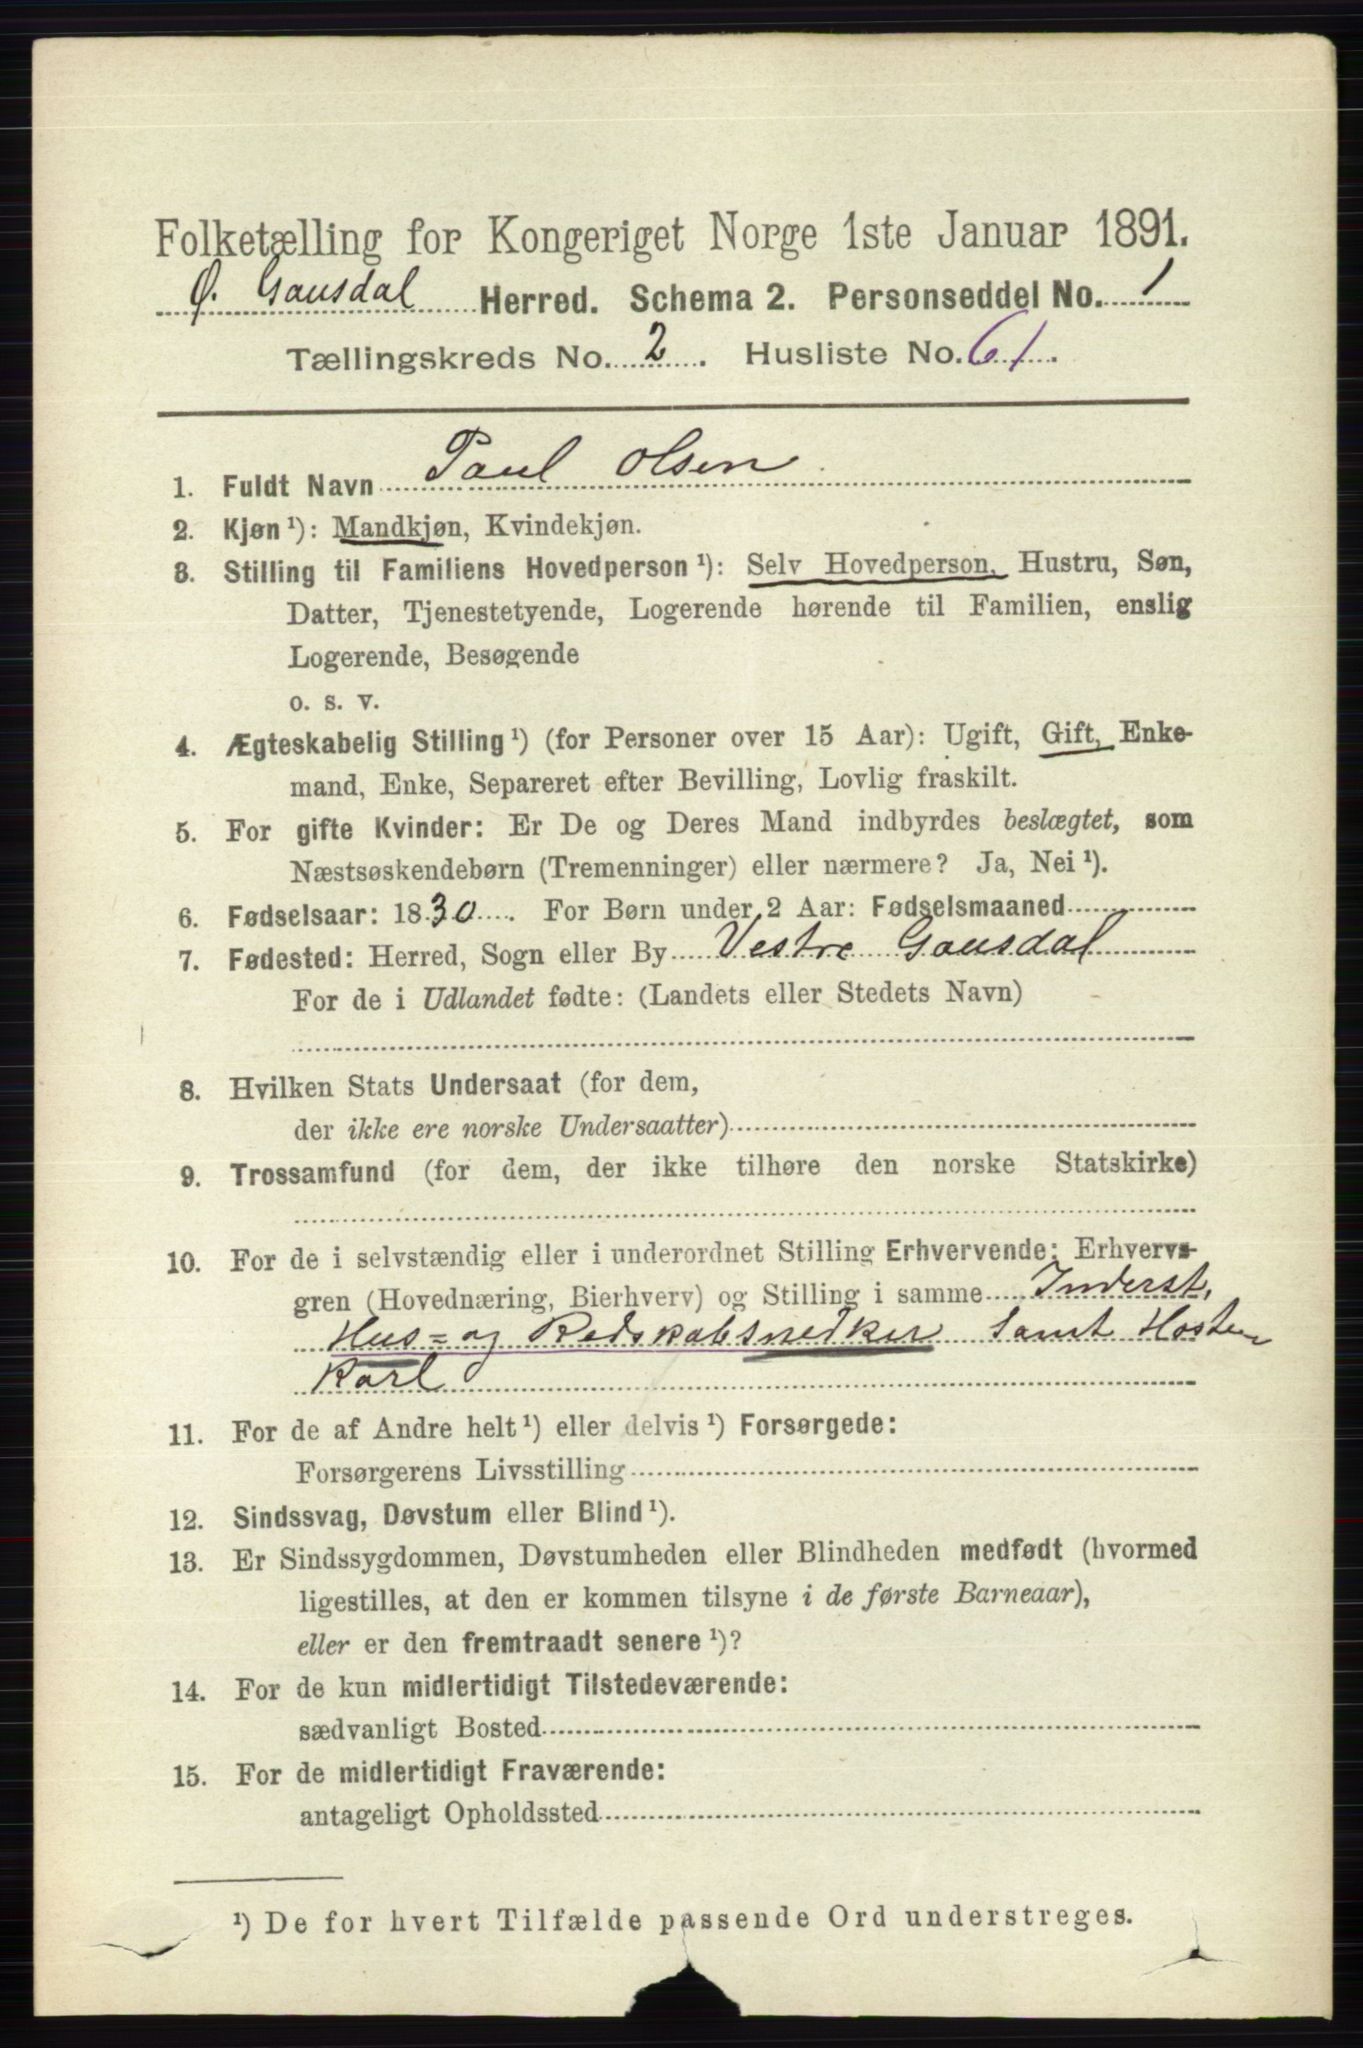 Folketælling for Kongeriget Norge 1ste Januar 1891.
Ø. Gausdal Herred. Schema 2. Personseddel No. 1
Tællingskreds No. 2. Husliste No. 61.
1. Fuldt Navn Paul Olsen
2. Kjøn ¹): Mandkjøn, Kvindekjøn.
3. Stilling til Familiens Hovedperson ¹): Selv Hovedperson, Hustru, Søn,
Datter, Tjenestetyende, Logerende hørende til Familien, enslig
Logerende, Besøgende
o. s. v.
4. Ægteskabelig Stilling ¹) (for Personer over 15 Aar): Ugift, Gift, Enke-
mand, Enke, Separeret efter Bevilling, Lovlig fraskilt.
5. For gifte Kvinder: Er De og Deres Mand indbyrdes beslægtet, som
Næstsøskendebørn (Tremenninger) eller nærmere? Ja, Nei ¹).
6. Fødselsaar: 1830. For Børn under 2 Aar: Fødselsmaaned
7. Fødested: Herred, Sogn eller By Vestre Gausdal
For de i Udlandet fødte: (Landets eller Stedets Navn)
8. Hvilken Stats Undersaat (for dem,
der ikke ere norske Undersaatter)
9. Trossamfund (for dem, der ikke tilhøre den norske Statskirke)
10. For de i selvstændig eller i underordnet Stilling Erhvervende: Erhvervs-
gren (Hovednæring, Bierhverv) og Stilling i samme Inderst,
Hus- og Redskabsnedker samt Hoste
Karl
11. For de af Andre helt ¹) eller delvis ¹) Forsørgede:
Forsørgerens Livsstilling
12. Sindssvag, Døvstum eller Blind ¹).
13. Er Sindssygdommen, Døvstumheden eller Blindheden medfødt (hvormed
ligestilles, at den er kommen tilsyne i de første Barneaar),
eller er den fremtraadt senere ¹)?
14. For de kun midlertidigt Tilstedeværende:
sædvanligt Bosted
15. For de midlertidigt Fraværende:
antageligt Opholdssted
¹) De for hvert Tilfælde passende Ord understreges.